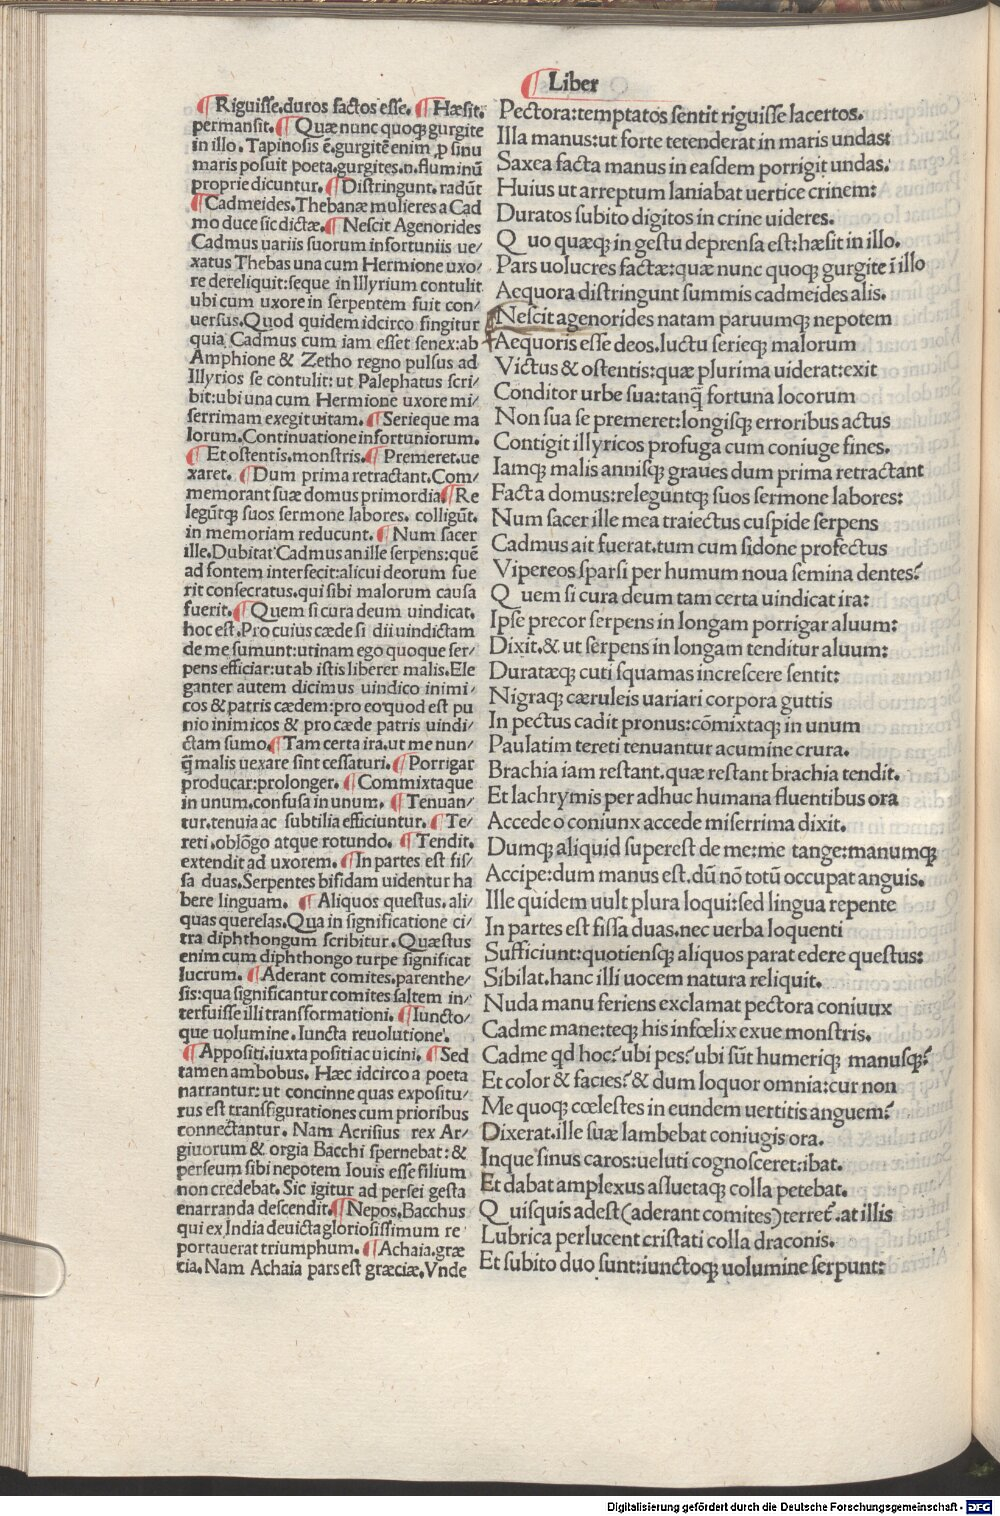 ¶ Liber
¶ Riguisse.duros factos esse. ¶ Hæsit.
permansit. ¶ Quæ nunc quoqꝫ gurgite
in illo. Tapinosis ē.gurgitē enim ꝓ sinu
maris posuit poeta.gurgites.n.fluminū
proprie dicuntur. ¶ Distringunt.radūt
¶ Cadmeides.Thebanæ mulieres a Cad
mo duce sic dictæ. ¶ Nescit Agenorides
Cadmus uariis suorum infortuniis ue/
xatus Thebas una cum Hermione uxo/
re dereliquit:seque in Illyrium contulit
ubi cum uxore in serpentem fuit con/
uersus.Quod quidem idcirco fingitur
quia Cadmus cum iam esset senex:ab
Amphione & Zetho regno pulsus ad
Illyrios se contulit: ut Palephatus scri/
bit:ubi una cum Hermione uxore mi/
serrimam exegit uitam. ¶ Serieque ma
lorum.Continuatione infortuniorum.
¶ Et ostentis.monstris. ¶ Premeret.ue
xaret. ¶ Dum prima retractant.Com/
memorant suæ domus primordia. ¶ Re
legūtqꝫ suos sermone labores. colligūt.
in memoriam reducunt. ¶ Num sacer
ille.Dubitat Cadmus an ille serpens:quē
ad fontem interfecit:alicui deorum fue
rit consecratus.qui sibi malorum causa
fuerit. ¶ Quem si cura deum uindicat.
hoc est.Pro cuius cæde si dii uindictam
de me sumunt:utinam ego quoque ser/
pens efficiar:ut ab istis liberer malis.Ele
ganter autem dicimus uindico inimi/
cos & patris cædem:pro eo quod est pu
nio inimicos & pro cæde patris uindi/
ctam sumo. ¶ Tam certa ira.ut me nun/
q̄ malis uexare sint cessaturi. ¶ Porrigar
producar:prolonger. ¶ Commixtaque
in unum.confusa in unum. ¶ Tenuan/
tur.tenuia ac subtilia efficiuntur. ¶ Te/
reti.oblōgo atque rotundo. ¶ Tendit.
extendit ad uxorem. ¶ In partes est fis/
sa duas.Serpentes bifidam uidentur ha
bere linguam. ¶ Aliquos questus.ali/
quas querelas.Qua in significatione ci/
tra diphthongum scribitur.Quæstus
enim cum diphthongo turpe significat
lucrum. ¶ Aderant comites.parenthe/
sis:qua significantur comites saltem in/
terfuisse illi transformationi. ¶ Iuncto/
que uolumine.Iuncta reuolutione.
¶ Appositi.iuxta positi ac uicini. ¶ Sed
tamen ambobus. Hæc idcirco a poeta
narrantur: ut concinne quas expositu/
rus est transfigurationes cum prioribus
connectantur. Nam Acrisius rex Ar/
giuorum & orgia Bacchi spernebat: &
perseum sibi nepotem Iouis esse filium
non credebat. Sic igitur ad persei gesta
enarranda descendit. ¶ Nepos.Bacchus
qui ex India deuicta gloriosissimum re
portauerat triumphum. ¶ Achaia.græ
cia. Nam Achaia pars est græciæ. Vnde
Pectora:temptatos sentit riguisse lacertos.
Illa manus:ut forte tetenderat in maris undas:
Saxea facta manus in easdem porrigit undas.
Huius ut arreptum laniabat uertice crinem:
Duratos subito digitos in crine uideres.
Q uo quæqꝫ in gestu deprensa est:hæsit in illo.
Pars uolucres factæ:quæ nunc quoqꝫ gurgite ī illo
Aequora distringunt summis cadmeides alis.
Nescit agenorides natam paruumqꝫ nepotem
Aequoris esse deos.luctu serieqꝫ malorum
Victus & ostentis:quæ plurima uiderat:exit
Conditor urbe sua:tanq̄ fortuna locorum
Non sua se premeret:longisqꝫ erroribus actus
Contigit illyricos profuga cum coniuge fines.
Iamqꝫ malis annisqꝫ graues dum prima retractant
Facta domus:releguntqꝫ suos sermone labores:
Num sacer ille mea traiectus cuspide serpens
Cadmus ait fuerat.tum cum sidone profectus
Vipereos sparsi per humum noua semina dentes?
Q uem si cura deum tam certa uindicat ira:
Ipse precor serpens in longam porrigar aluum:
Dixit.& ut serpens in longam tenditur aluum:
Duratæqꝫ cuti squamas increscere sentit:
Nigraqꝫ cæruleis uariari corpora guttis
In pectus cadit pronus:cōmixtaqꝫ in unum
Paulatim tereti tenuantur acumine crura.
Brachia iam restant.quæ restant brachia tendit.
Et lachrymis per adhuc humana fluentibus ora
Accede o coniunx accede miserrima dixit.
Dumqꝫ aliquid superest de me:me tange:manumqꝫ
Accipe:dum manus est.dū nō totū occupat anguis.
Ille quidem uult plura loqui:sed lingua repente
In partes est fissa duas.nec uerba loquenti
Sufficiunt:quotiensqꝫ aliquos parat edere questus:
Sibilat.hanc illi uocem natura reliquit.
Nuda manu feriens exclamat pectora coniuux
Cadme mane:teqꝫ his infœlix exue monstris.
Cadme qd hoc? ubi pes? ubi sūt humeriqꝫ manusqꝫ?
Et color & facies? & dum loquor omnia:cur non
Me quoqꝫ cœlestes in eundem uertitis anguem?
Dixerat.ille suæ lambebat coniugis ora.
Inque sinus caros:ueluti cognosceret:ibat.
Et dabat amplexus assuetaqꝫ colla petebat.
Q uisquis adest(aderant comites)terret̄.at illis
Lubrica perlucent cristati colla draconis.
Et subito duo sunt:iunctoqꝫ uolumine serpunt:
Digitalisierung gefördert durch die Deutsche Forschungsgemeinschaft - DFG